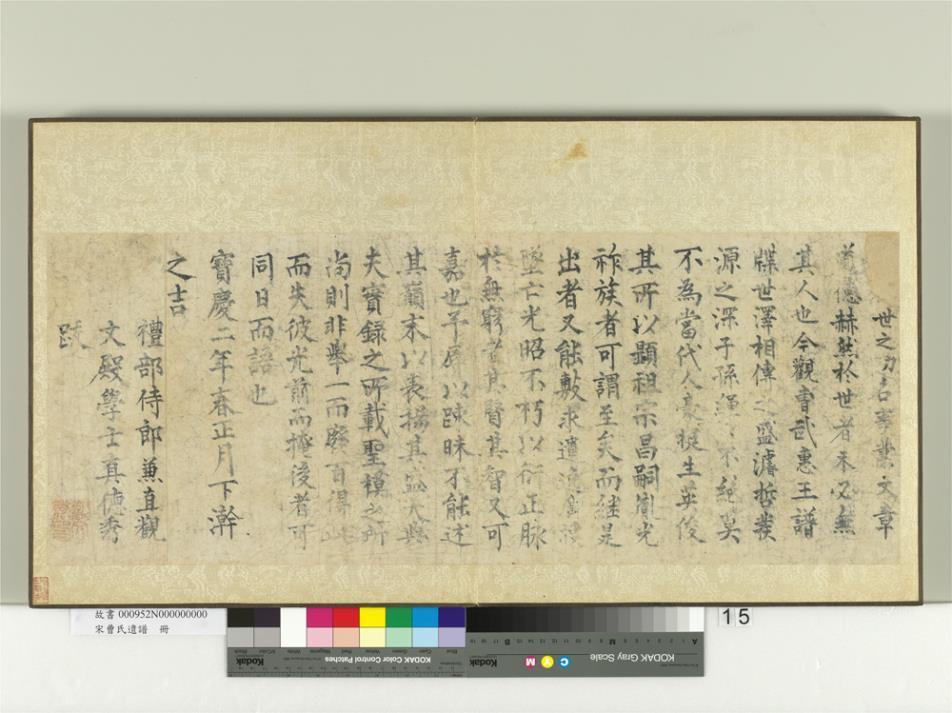 世之功名事業文章
道德赫然於世者未必無
其人也今觀曹武惠王譜
牒世澤相傳之盛濬哲發
源之深子孫繩〻不絕莫
不為當代人豪挺生英俊
其所以顯祖宗昌嗣胤光
祚族者可謂至矣而繼是
出者又能敷求遺逸
墜亡光昭不朽以衍正脉
於無窮者其賢其智又可
嘉也予辱以踈昧不能述
其巔末以表揚其盛大與
夫實錄之所載聖模之所
尚則非舉一而廢百得此
而失彼光前而掩後者可
同日而語也
寶慶二年春正月下澣
之吉
禮部侍郎兼直觀
文殿學士真德秀
跋
故書 000952N000000000
宋曹氏遺譜 冊
15
Kodak
KODAK Color Control Patches
KODAK Gray Scale
Kodak
C Y M